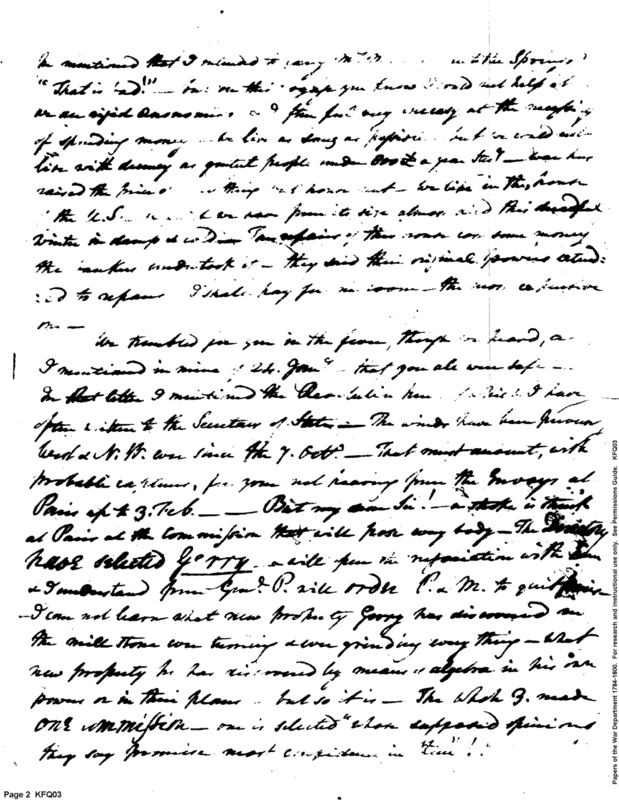 mentioned that I intended to carry Mrs M to the Springs
"That is bad!" — but on this voyage you know I could not help it
we are rigid œconomists & I then feel very uneasy at the necessity
of spending money — we live as snug as possible but we could not
live with decency as genteel people under a year Ster. — War has
raised the price of thing but house rent — We live in the house
of the U.S. we have from its size almost this dreadful
winter in damp & cold — The repairs of this house cost some money
the bankers undertook it — they said their original powers extend:
:ed to repairs I shall pay for one room — the most expensive
one —
We trembled for you in the fever, though we heard, as
I mentioned in mine of 24. Jany — that you all were safe —
In that letter I mentioned the Revolution here I have
often written to the Secretary of State — The winds have been
West & N.W. ever since the 7. Octr. — That must account, with
probable captures, for your not hearing from the Envoys at
Paris up to 3. Feb. — But my dear Sir! — a stroke is struck
at Paris at the Commission that will poss every body — The Directory
have selected Gerry & will pen the negociation with him
& I understand from Genl. P. will order P. & M. to quit France
— I can not learn what new property Gerry has discovered in
the mill stone ever turning & ever grinding every thing — what
new property he has discovered by means of algebra in his own
powers or in their plans but so it is — The whole 3. made
one commission — one is selected "whose supposed opinions
they say promise most confidence in him"!!
Page 2 KFQ03
Papers of the War Department 1784-1800. For research and instructional use only. See Permissions Guide. KFQ03